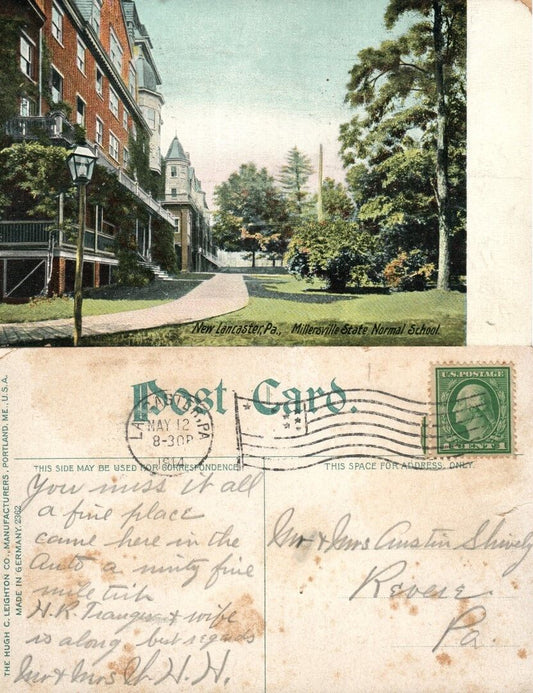 New Lancaster, Pa., Millersville State Normal School.
Post Card.
LANCASTER, PA
MAY 12
8-30P
1914
U.S. POSTAGE
1 CENT 1
THIS SIDE MAY BE USED FOR CORRESPONDENCE
THIS SPACE FOR ADDRESS ONLY.
THE HUGH C. LEIGHTON CO., MANUFACTURERS, PORTLAND, ME., U.S.A.
MADE IN GERMANY. 2362
You miss it all
a fine place
came here in the
Auto a ninty five
mile trip
H.R. & wife
is along best regards
Mr & Mrs H. H.
Mr & Mrs Austin Shively
Revere
Pa.